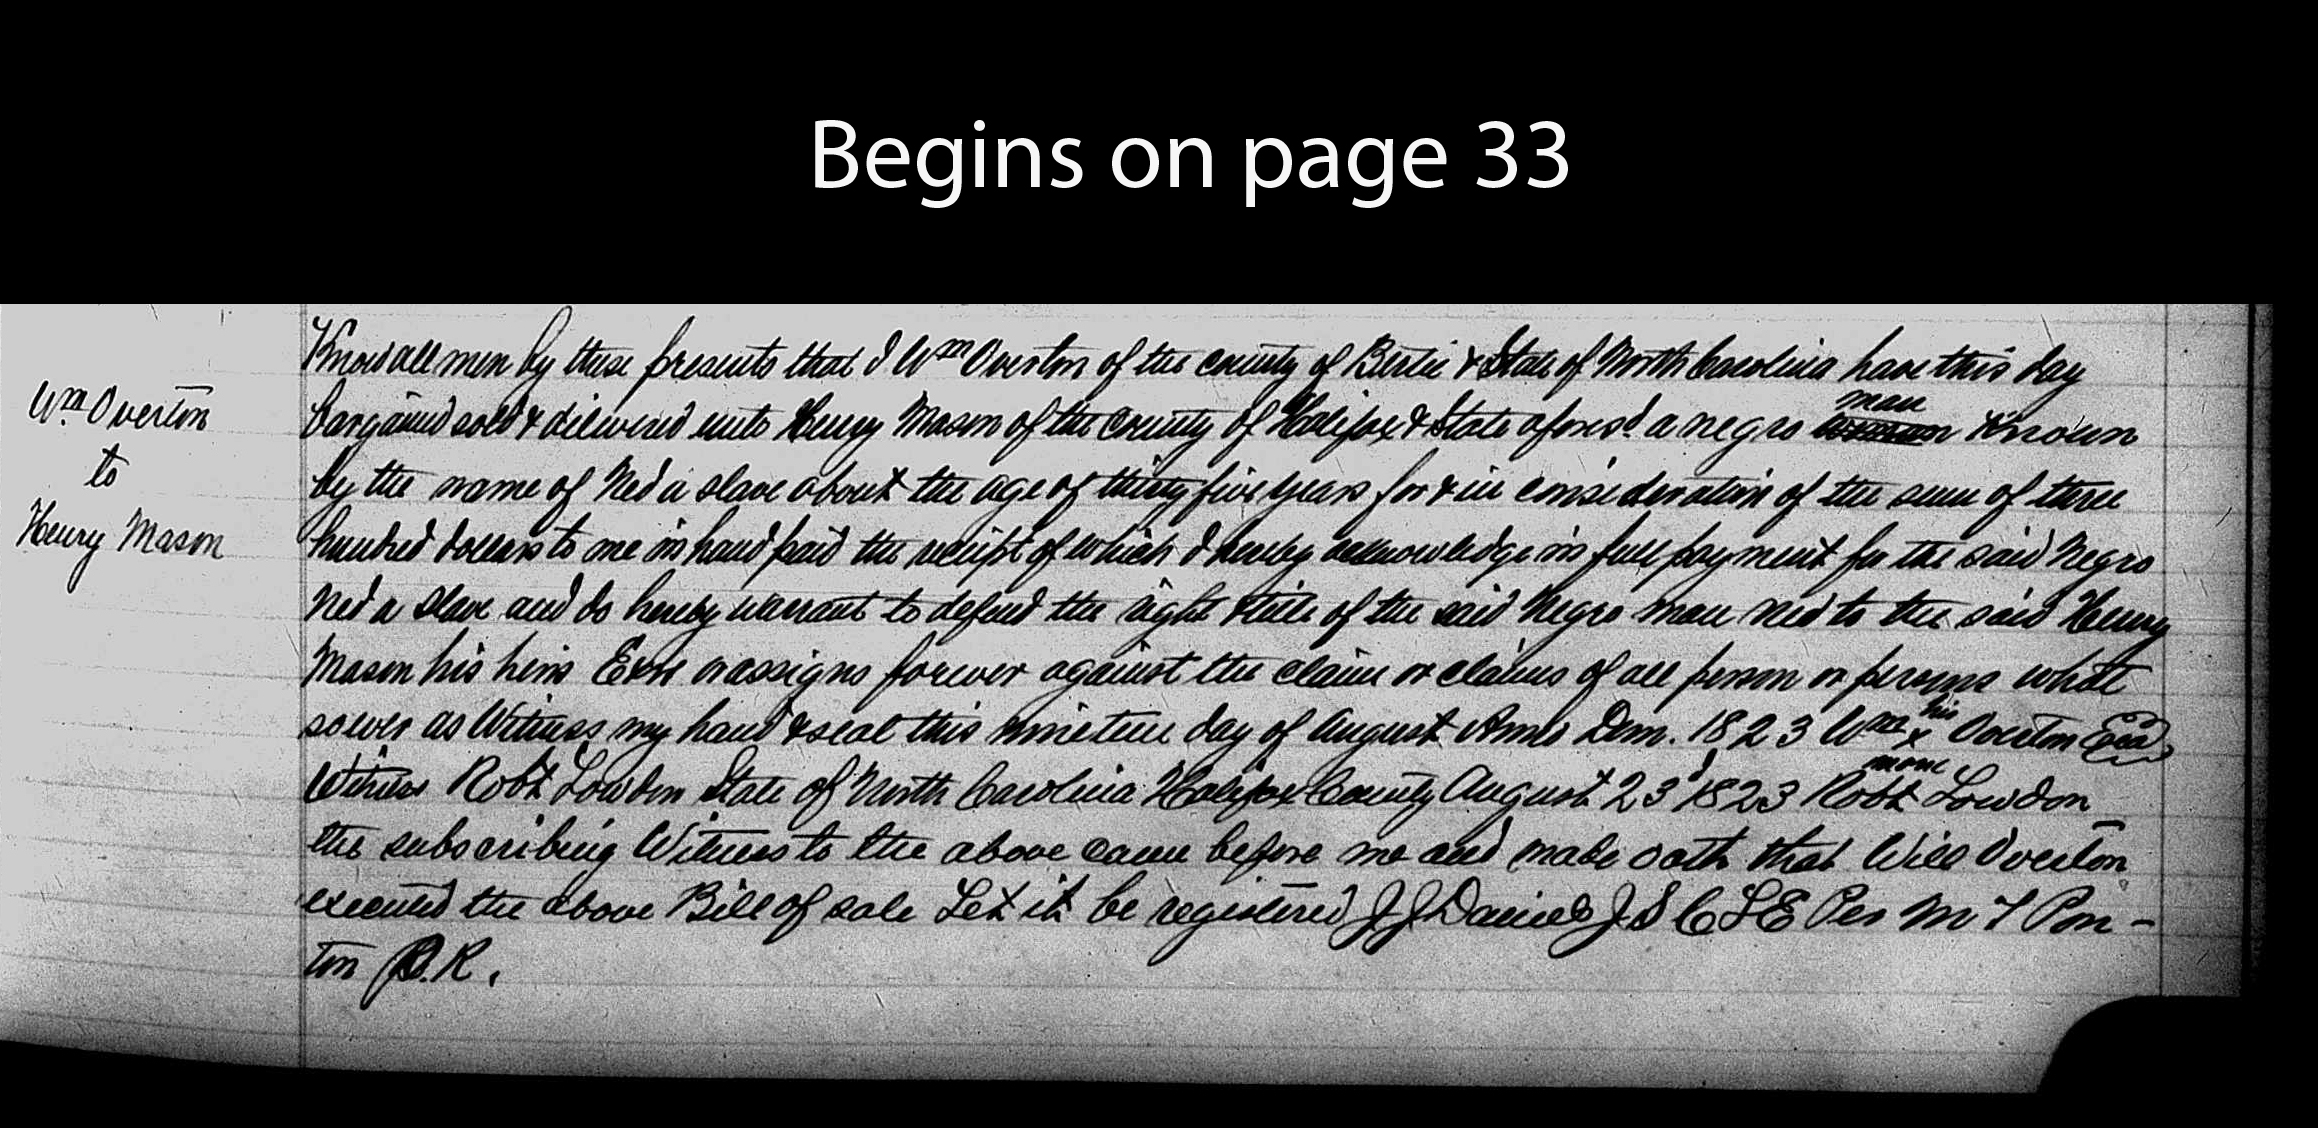 Begins on page 33
Wm Overton
to
Henry Mason
Know all men by these presents that I Wm Overton of the county of Bertie & State of North Carolina have this day
bargained sold & delivered unto Henry Mason of the County of Halifax & State aforesd. a negro man known
by the name of Ned a slave about the age of thirty five years for & in consideration of the sum of three
hundred dollars to me in hand paid the receipt of which I hereby acknowledge in full payment for the said Negro
Ned a slave and do hereby warrant to defend the right & title of the said Negro man Ned to the said Henry
Mason his heirs Exrs or assigns forever against the claim or claims of all person or persons what
soever as Witness my hand & seal this nineteen day of August Anno Dom. 1823 Wm his x mark Overton Seal
Witness Robt Lowdon State of North Carolina Halifax County August 23d 1823 Robt Lowdon
the subscribing Witness to the above came before me and made oath that Will Overton
executed the above Bill of sale Let it be registered J J Daniel J S C L E Per M T Pon-
ton P.R.